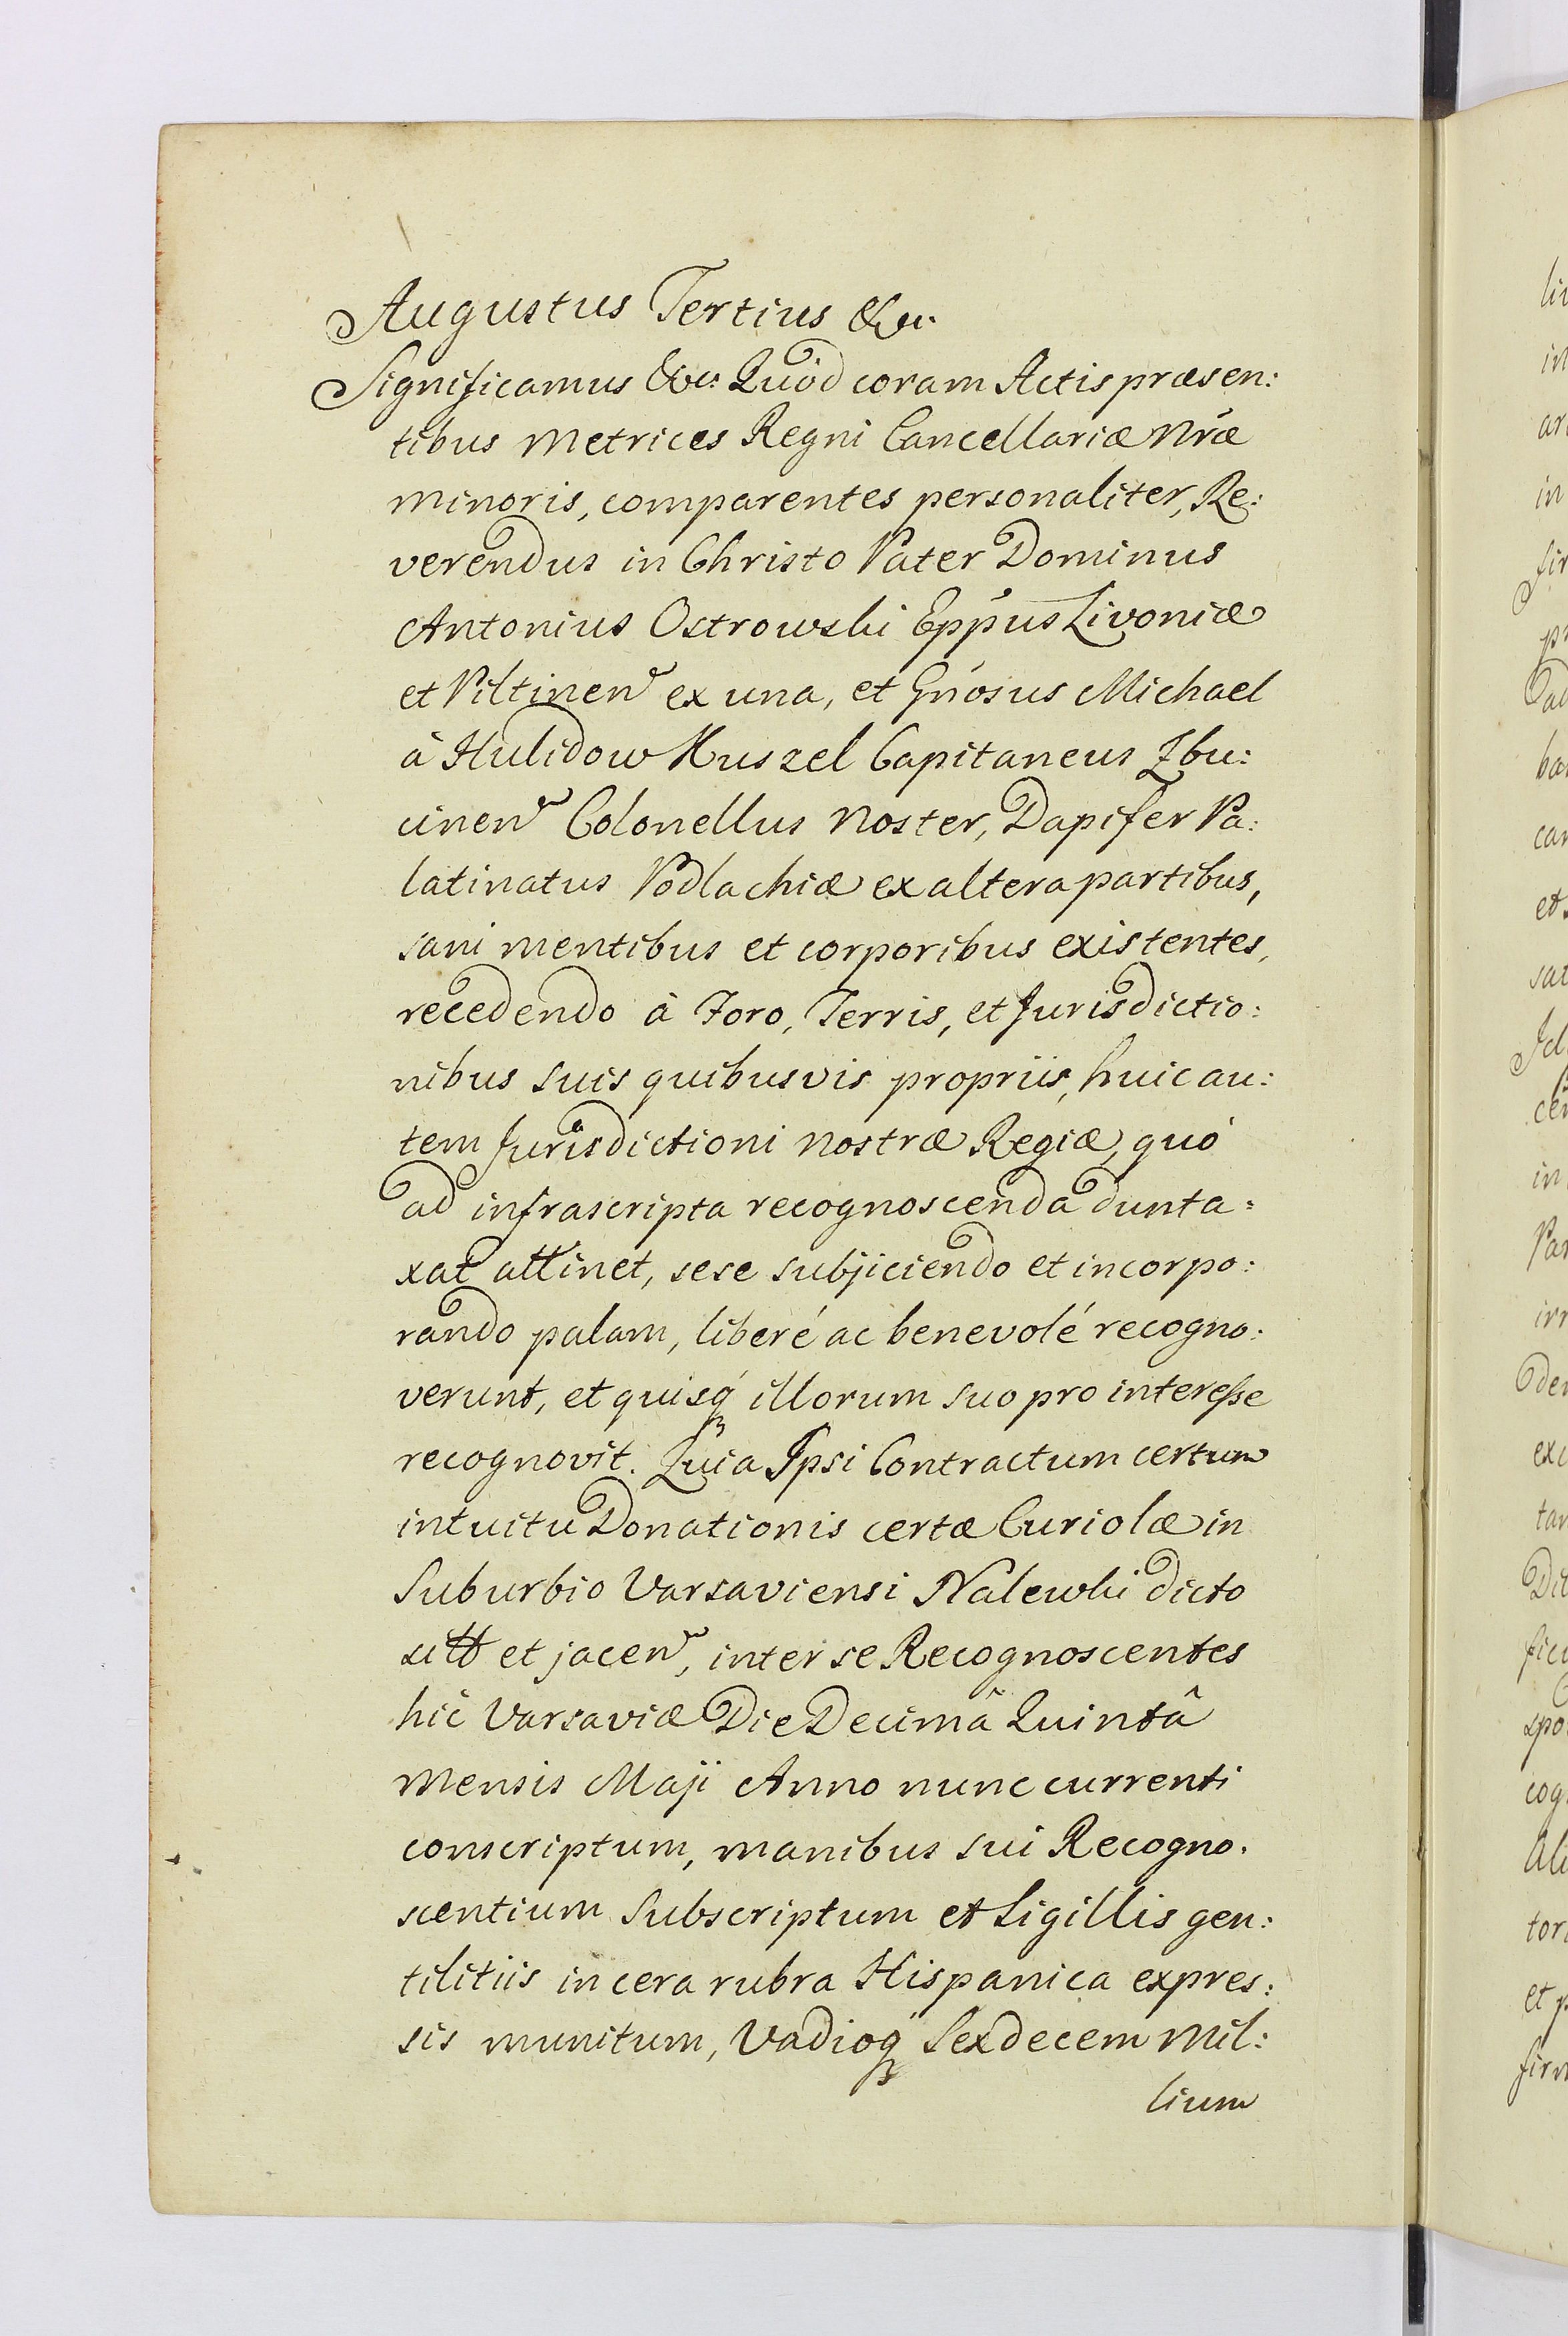 Augustus Tertius &c.
Significamus &c. Quòd coram Actis præsen:
tibus Metrices Regni Cancellariæ Nr̃æ
Minoris, comparentes personaliter, Re:
verendus in Christo Pater Dominus
Antonius Ostrowski Epp̃us Livoniæ
et Piltinen̄ ex una, et Gñosus Michael
à Hulidow Kuszel Capitaneus Zbu:
cinen̄ Colonellus Noster, Dapifer Pa:
latinatus Podlachiæ ex altera partibus,
sani mentibus et corporibus existentes,
recedendo à Foro, Terris, et Jurisdictio:
nibus suis quibusvis propriis, huic au:
tem Jurisdictioni Nostræ Regiæ, quó
ad infrascripta recognoscenda dunta:
xat attinet, sese subjiciendo et incorpo:
rando palam, liberé ac benevolé recogno:
verunt, et quisq́ illorum suo pro interesse
recognovit. Quia Ipsi Contractum certum
intuitu Donationis certæ Curiolæ in
Suburbio Varsaviensi Nalewki dicto
sitt et jacen̄, inter se Recognoscentes
hic Varsaviæ Die Decimâ Quintâ
Mensis Maji Anno nunc currenti
conscriptum, manibus sui Recogno.
scentium subscriptum et Sigillis gen:
tilitiis in cera rubra Hispanica expres:
sis munitum, Vadioq́ Sexdecem Mil:
lium